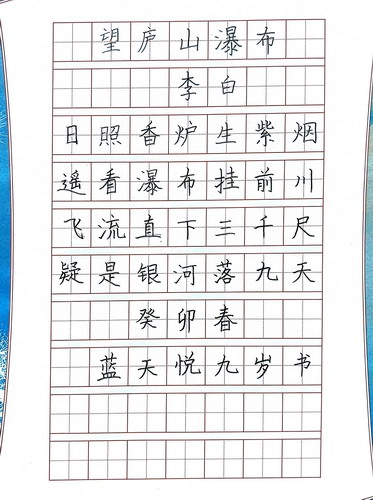 望庐山瀑布
李白
日照香炉生紫烟
遥看瀑布挂前川
飞流直下三千尺
疑是银河落九天
癸卯春
蓝天悦九岁书